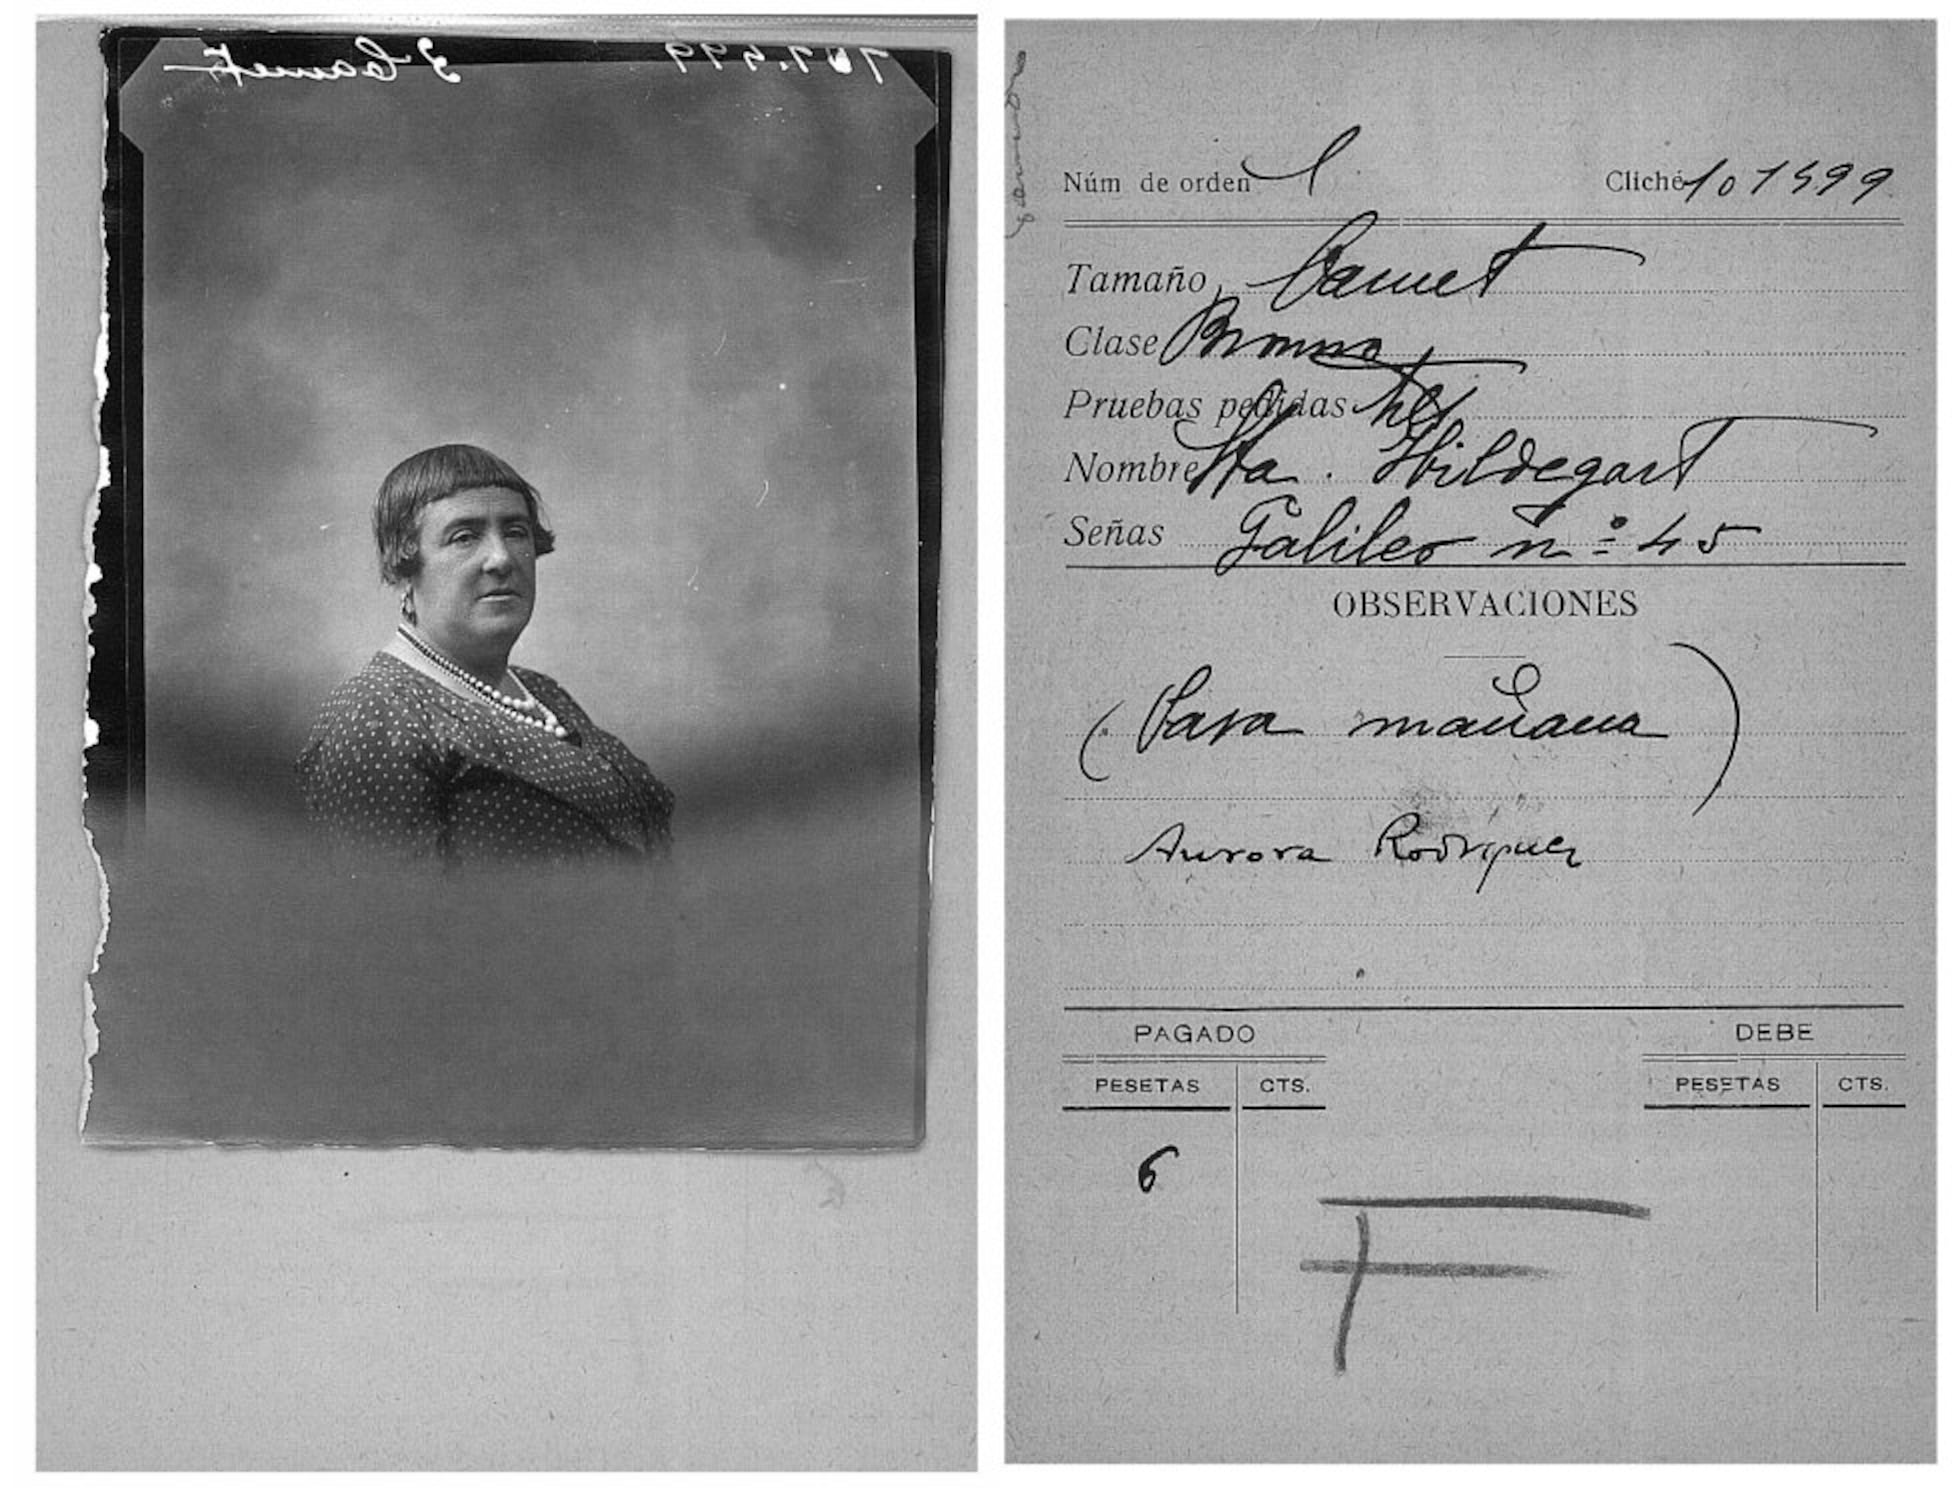 Carnet
Núm de orden 1 Cliché 101599
Tamaño Carnet
Clase Bromuro
Pruebas pedidas
Nombre Sta. Hildegart
Señas Galileo nº 45
OBSERVACIONES
(Para mañana)
Aurora Rodriguez
PAGADO DEBE
PESETAS CTS. PESETAS CTS.
6